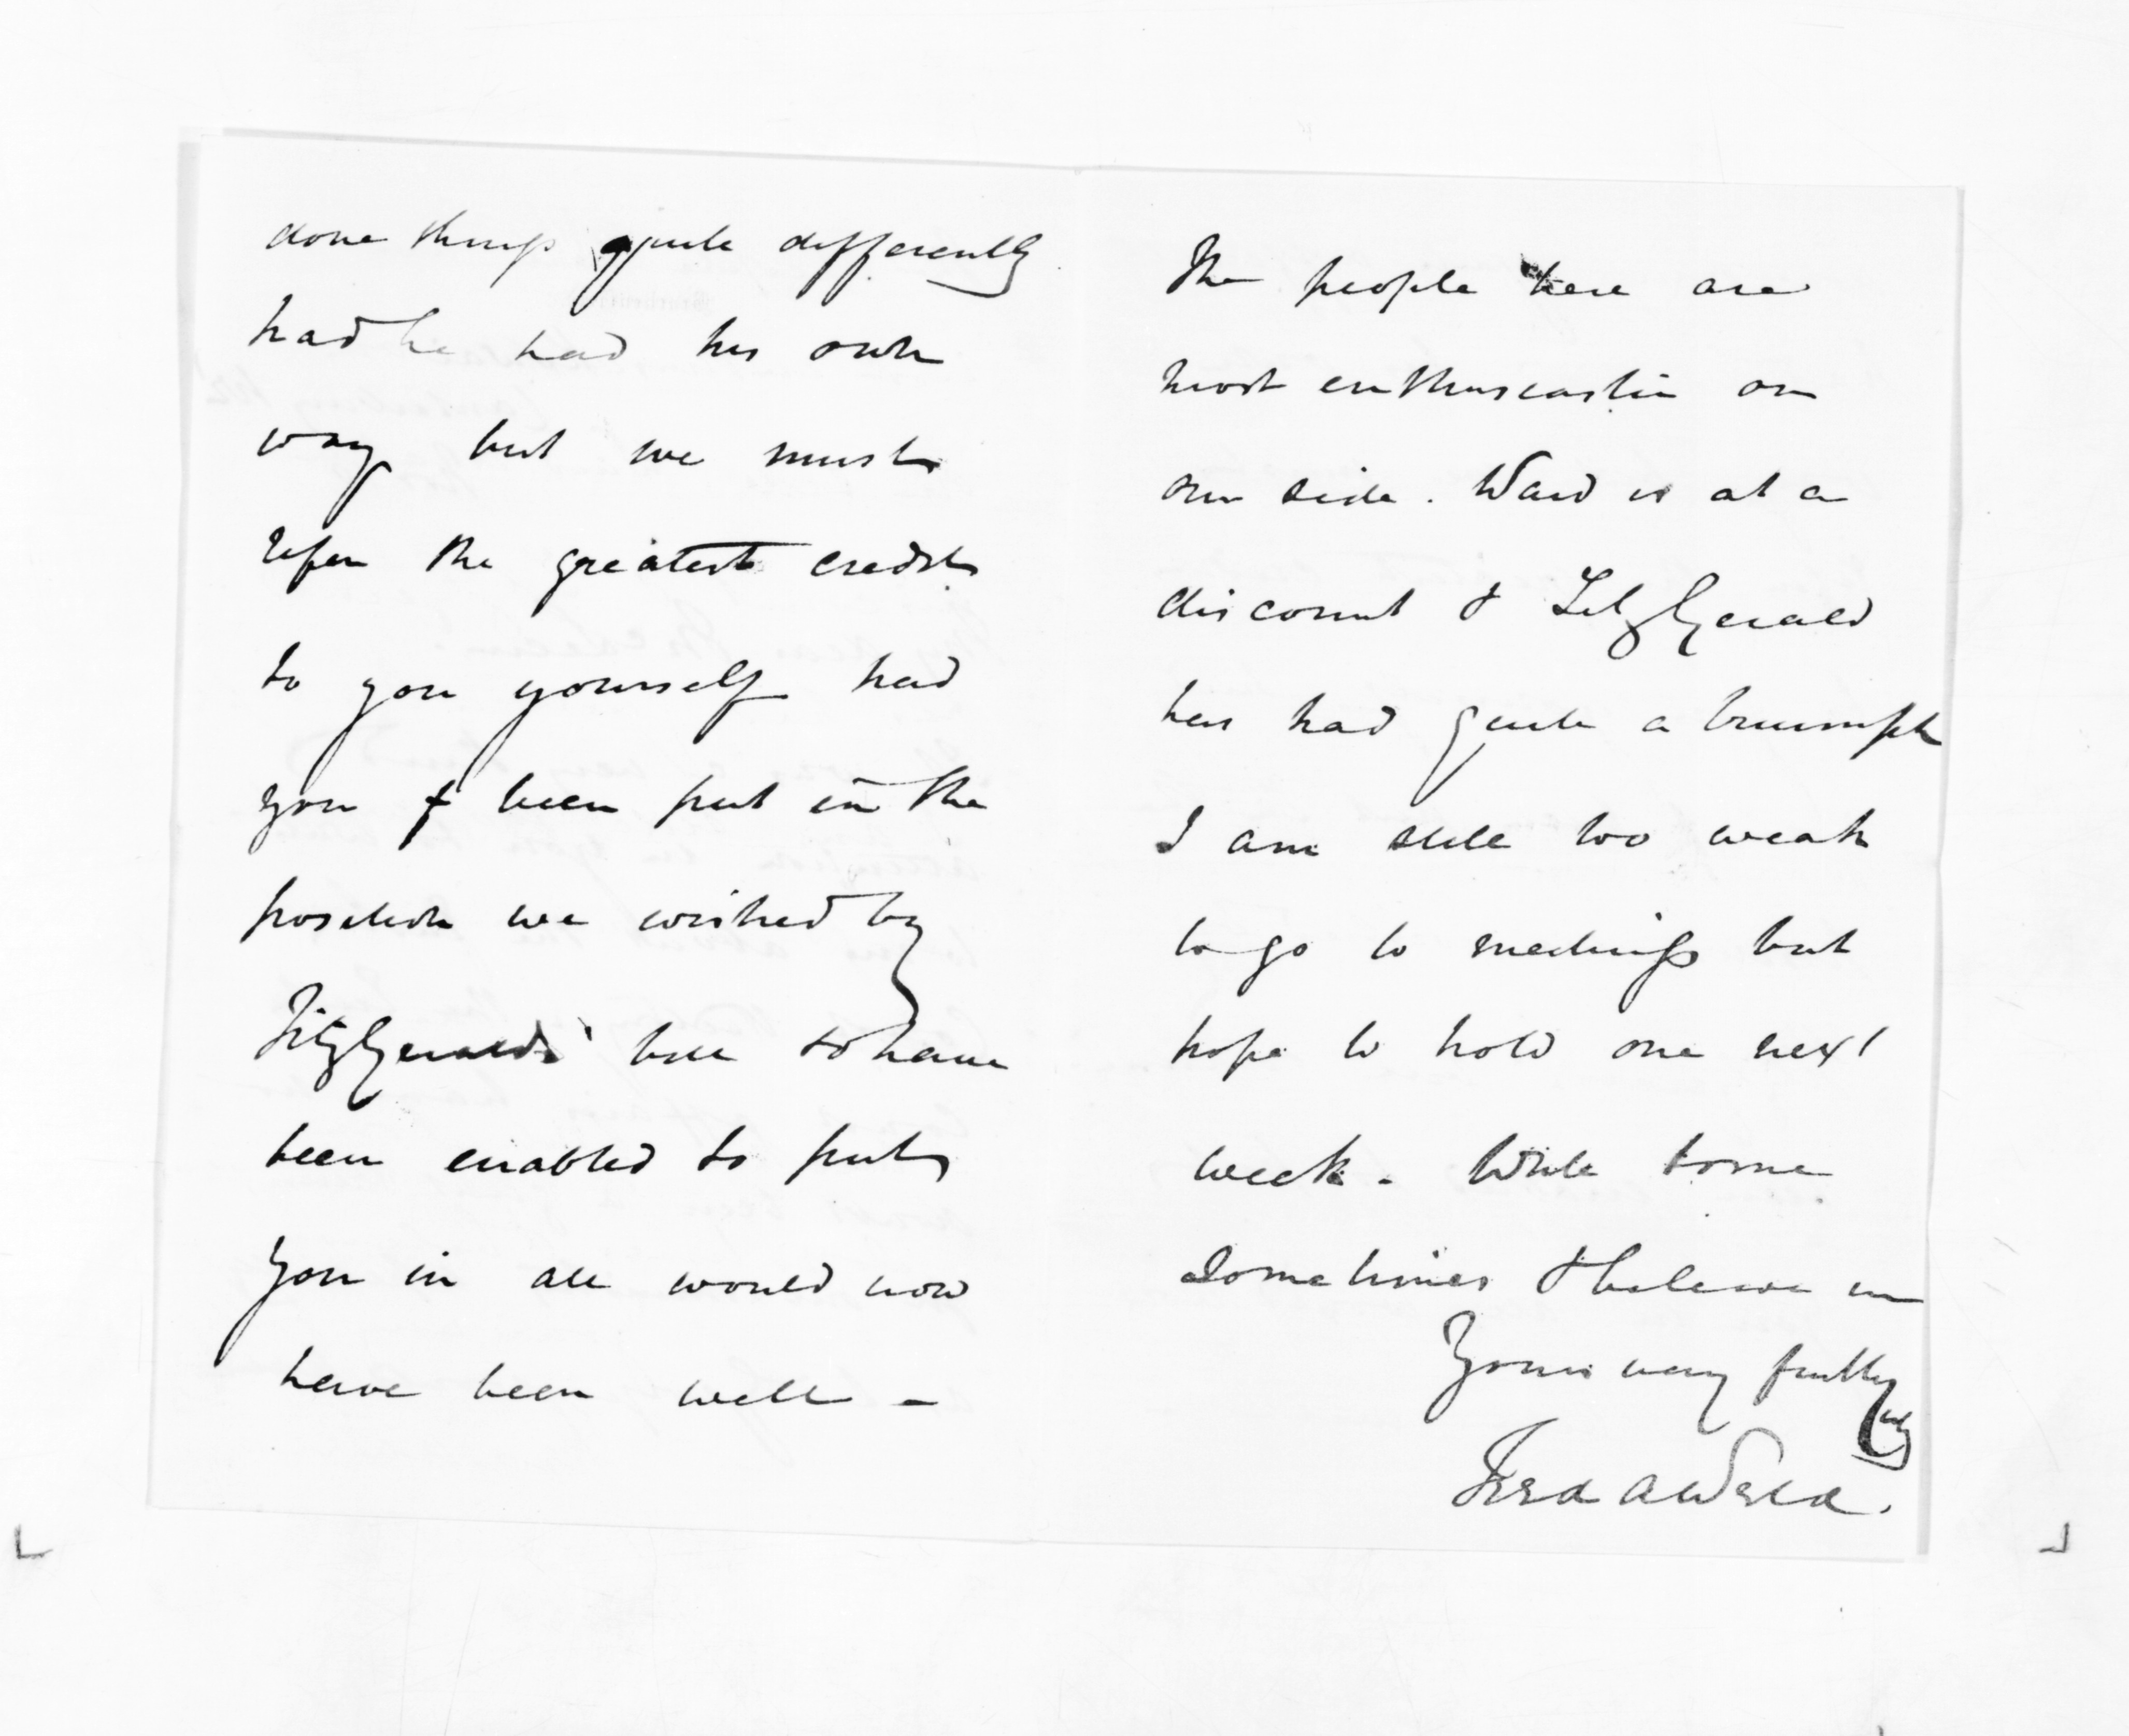 done things quite differently
had he had his own
way but we must
the greatest credit
to you yourself had
you & been put in the
position we wished by
FitzGerald's bill & have
been enabled to put
you in all would now
have been well -
The people here are
most enthusiastic on
our side. Ward is at a
discount & FitzGerald
has had quite a triumph
I am still too weak
to go to meetings but
hope to hold one next
week. Write some
sometimes & believe me
Yours very truly
Fred A Weld.